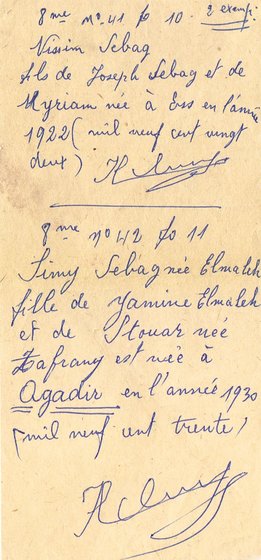 8me no 41 fo 10. 2 exempl.
Nissim Sebag
fils de Joseph Sebag et de
Myriam née à Ess en l'année
1922 (mil neuf cent vingt
deux)
8me no 42 fo 11
Simy Sebag née Elmaleh
fille de Yamine Elmaleh
et de Stouar née
Zafrany est née à
Agadir en l'année 1930
(mil neuf cent trente)